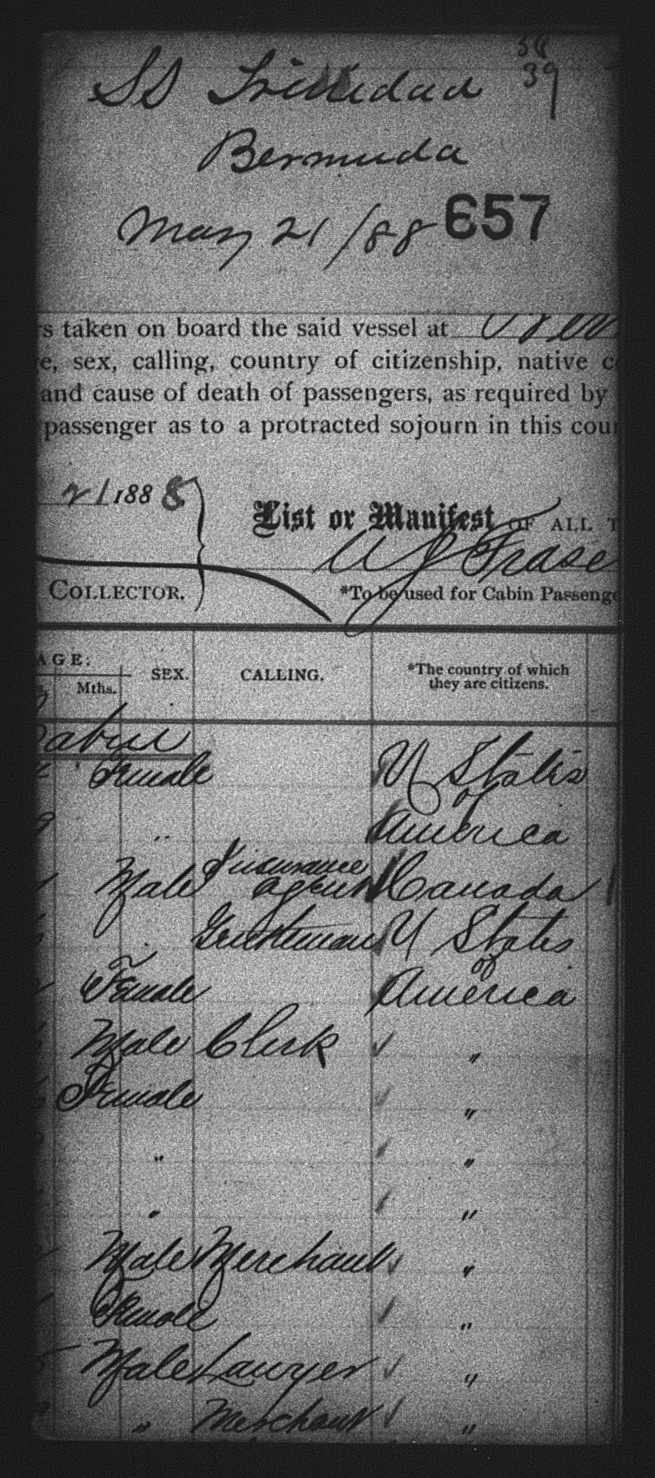 38
39
SS Trinidad
Bermuda
May 21/88 657
s taken on board the said vessel at
e, sex, calling, country of citizenship, native c
and cause of death of passengers, as required by
passenger as to a protracted sojourn in this cour
21 1888
List or Manifest OF ALL T
W J Frase
COLLECTOR.
*To be used for Cabin Passenge
AGE:
Mths. SEX. CALLING. *The country of which
they are citizens.
Cabin
Female U States
of
" America
Male Insurance
agent Canada
" Gentleman U States
of
Female America
Male Clerk ✓ "
Female ✓ "
" ✓ "
" ✓ "
Male Merchant ✓ "
Female ✓ "
Male Lawyer ✓ "
" Merchant ✓ "